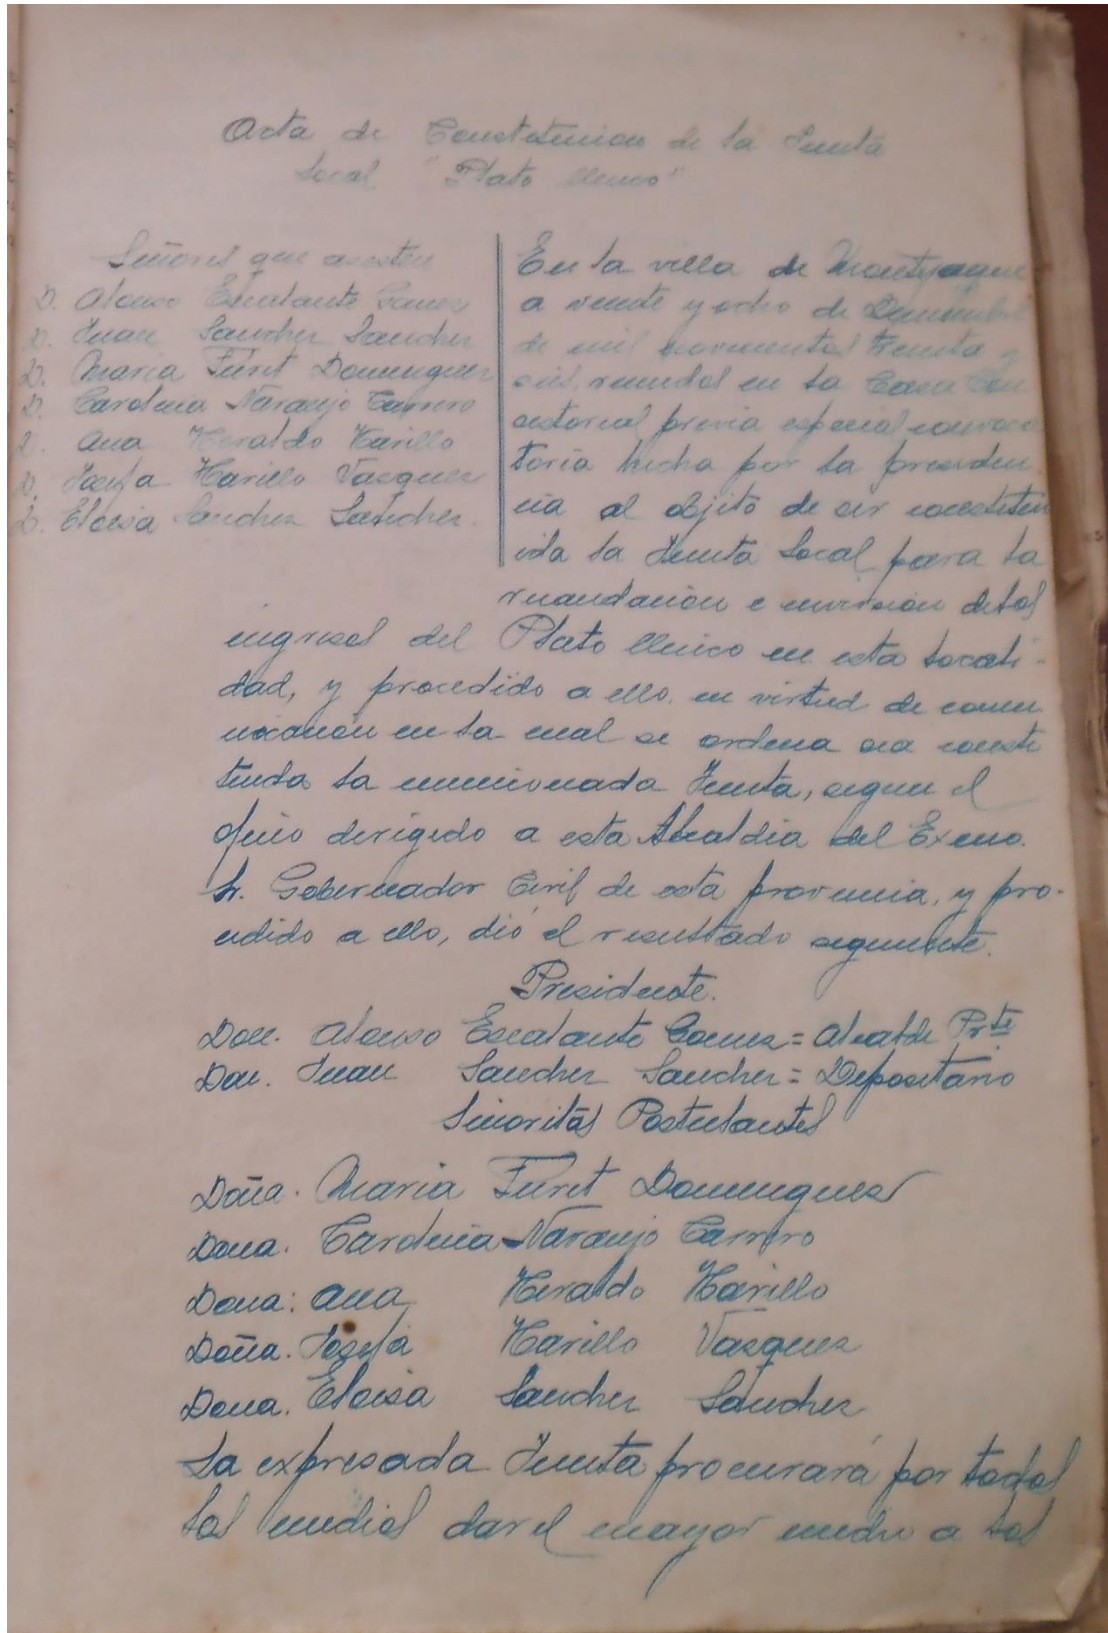 Acta de Constitución de la Junta
Local "Plato Unico"
Señores que asisten
D. Alonso Escalante Gomez
D. Juan Sanchez Sanchez
D. Maria Furet Dominguez
D. Carolina Naranjo Carrero
D. Ana Hiraldo Harillo
D. Josefa Harillo Vasquez
D. Eloisa Sanchez Sanchez.
En la villa de Montejaque
a veinte y ocho de Diciembre
de mil novecientos treinta y
seis, reunidos en la Casa Con
sistorial previa especial convoca
toria hecha por la presiden
cia al objeto de ser constitu
ida la Junta Local para la
recaudación e inversion de los
ingresos del Plato Unico en esta locali-
dad, y procedido a ello en virtud de comu
nicación en la cual se ordena sea consti
tuida la mencionada Junta, segun el
oficio dirigido a esta Alcaldia del Excmo.
Sr. Gobernador Civil de esta provincia, y pro-
cedido a ello, dió el resultado siguiente.
Presidente.
Don. Alonso Escalante Gomez = Alcalde Prte
Don. Juan Sanchez Sanchez = Depositario
Señoritas Postulantes
Doña. Maria Furet Dominguez
Dona. Carolina Naranjo Carrero
Dona: Ana Hiraldo Harillo
Doña. Josefa Harillo Vasquez
Dona. Eloisa Sanchez Sanchez
La expresada Junta procurará por todos
los medios dar el mayor a los